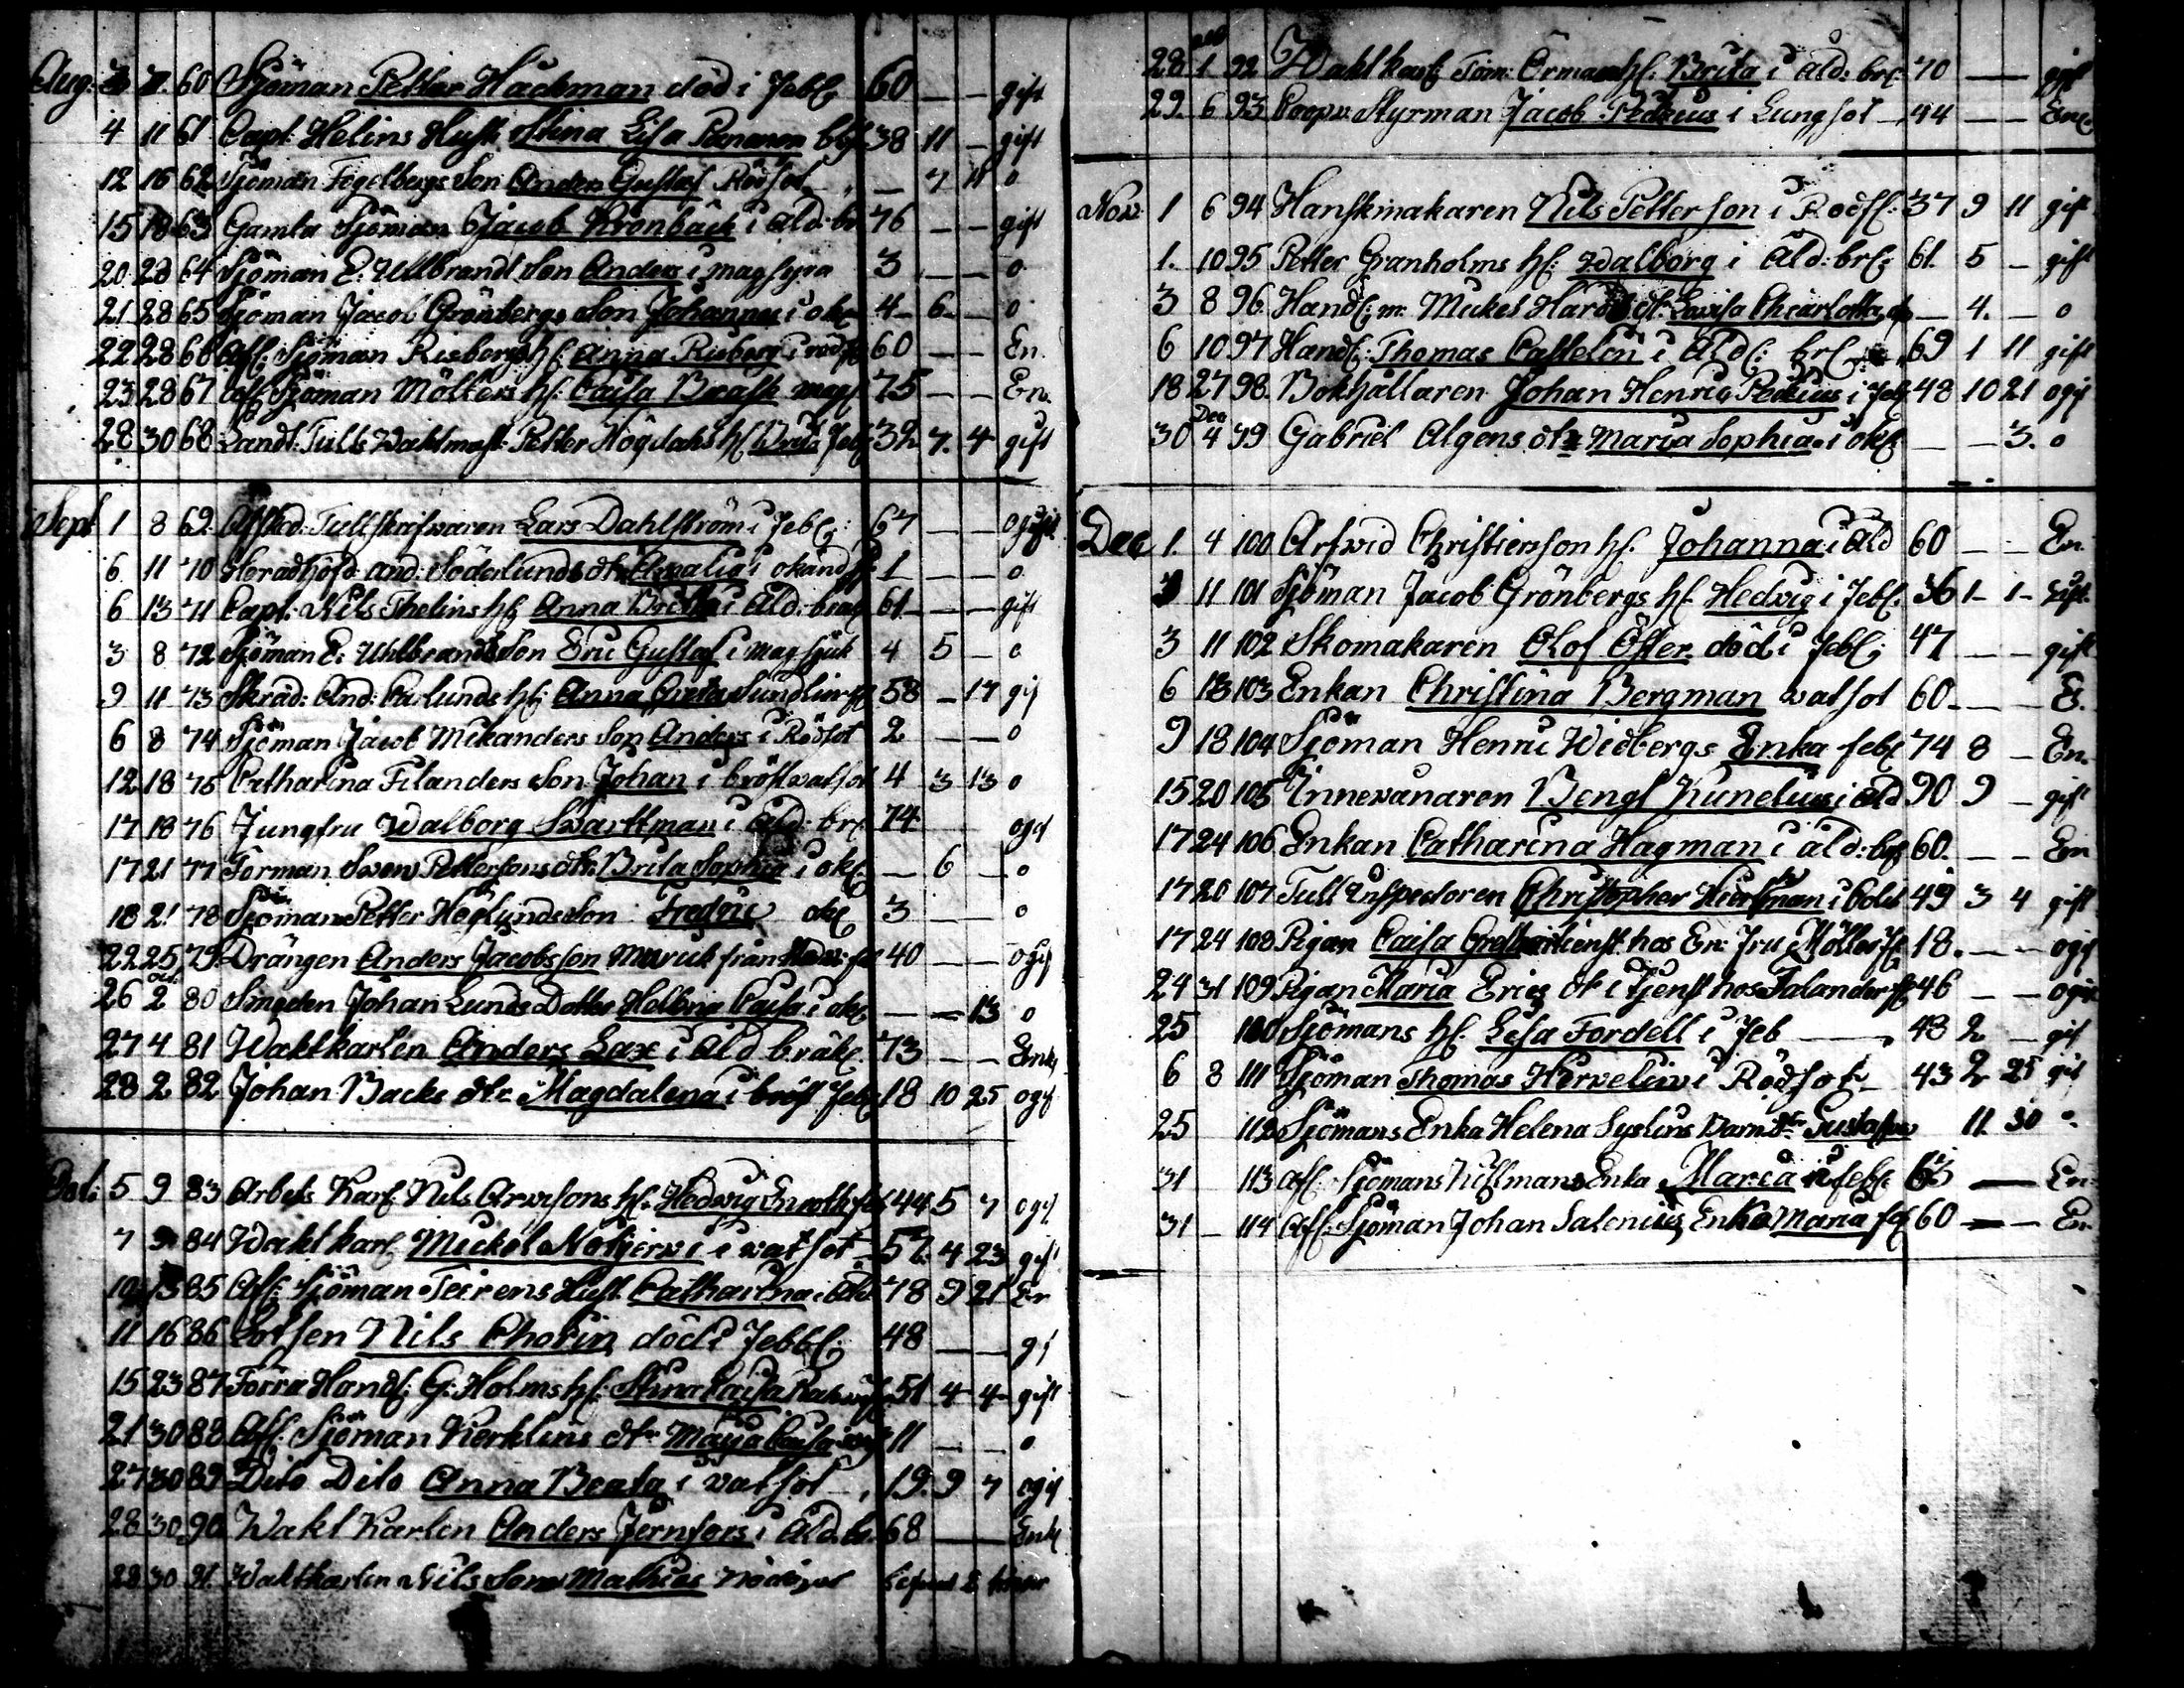 Aug: 60 Sjöman Petter Hackman död i Febl; 60 — — gift
4 11 61 Capt. Helins Hust. Stina Lisa 38 11 — gift
12 16 62 Sjöman Fogelbergs Son Anders Gustaf Rödsot — 7 11 o
15 18 63 Gamla Sjöman Jacob Kronbäck i ald: br 76 — — gift
20 28 64 Sjöman E. Uhlbrandt Son Anders i magsyra 3 — — o
21 28 65 Sjöman Jacob Grönbergs Son Johannes i ok 4 6 — o
22 28 66 Afs: Sjöman Risbergs hf: Anna Risberg i röds 60 — — En.
23 28 67 Afs: Sjöman Möllers hf: Caisa Brask mags 75 — — En.
28 30 68 Landt: Tulls Waktmast: Petter Högdahls hf Brita Feb 32 7. 4 gift
Sept 1 8 69. Afsked: Tullskrifvaren Lars Dahlström i Febl; 67 — — ogift
6 11 70 and: Söderlunds dtr Amalia i okänd 1 — — o
6 13 71 Capt: Nils Thelins hf; Anna i Ald: bräc 61 — — gift
3 8 72 Sjöman E: Uhlbrandt Son Eric Gustaf i mag sjuk 4 5 — o
9 11 73 Skräd: And: Carlunds hf: Anna Greta Sundling 58 — 17 gif
6 8 74 Sjöman Jacob Mikanders Son Anders i Rödsot 2 — — o
12 18 75 Catharina Filanders Son Johan i bröstwatsot 4 3 13 o
17 18 76 Jungfru Walborg Swartman i Ald: brc 74 ogif
17 21 77 Forman Swen Pettersons dtr: Brita Sophia i okc — 6 — o
18 21 78 Sjöman Petter Höglunds Son Fredric okc 3 — — o
22 25 79. Drängen Anders Jacobsson Murick från 40 — — ogif
26 2 80 Smeden Johan Lunds Dotter Hellena Caisa i okc — — 13 o
27 4 81 Waktkarlen Anders Lax i Ald bräkc 73 — — Enk
28 2 82 Johan Backs dtr Magdalena i bröst Feb 18 10 25 ogif
Oct: 5 9 83 Arbets Karl: Nils Arvisons hf: Hedwig 44 5 7 ogif
7 9 84 Wakt karl: Mickel i watsot 52. 4 23 gift
10 13 85 Afs: Sjöman Teirens Hust. Catharina i Ald 78 9 21 En
11 16 86 Lotsen Nils Chorin död i Febbl; 48 — — gf
15 23 87 Förra Handl: G: Holms hf: Stina Caisa 51 4 4 gift
21 30 88 Afs: Sjöman Kierklins dtr Maja Caisa 11 — — o
27 30 89 Dito Dito Anna Beata i vatsot 19. 9 7 ogif
28 30 90 Wakt Karlen Anders Jernfors i Ald. b. 68 — — Enk
28 30 91. Waktkarlen Nils Sons Mathias
28 1 92 Waktkarl: Tom: Örmans hf: Brita i ald: brc: 70 — gift
29. 6 93 Coopv: Styrman Jacob Pedrius i Lungsot 44 — — Enk
Nov: 1 6 94 Hanskmakaren Nils Petterson i Rods: 37 9 11 gift
1. 10 95 Petter Granholms hf: Walborg i Ald: brc; 61. 5 — gift
3 8 96. Handl: m: Mickel dtr: Lovisa Charlotta — 4. — o
6 10 97 Handl: Thomas Castelin i Ald: brc 69 1 11 gift
18 27 98. Bokhållaren Johan Henric Pedrius i Feb 48 10 21 ogif
30 Dec 4 99 Gabriel Algens dtr Maria Sophia i okc — — 3. o
Dec 1. 4 100 Arfwid Christiersson hf: Johanna i Ald 60 — — En.
3 11 101 Sjöman Jacob Grönbergs hf: Hedvig i Febl: 36 1 1 gift
3 11 102 Skomakaren Olof Öster död i Febl; 47 — — gift
6 13 103 Enkan Christina Bergman watsot 60. — — E.
9 18 104 Sjöman Henric Widbergs Enka febl 74 8 — En.
15 20 105 Innevånaren Bengt Kunelius i ald 90 9 — gift
17 24 106 Enkan Catharina Hagman i ald: brc 60. — — En
17 20 107 Tull Inspectoren Christopher i 49 3 4 gift
17 24 108 Pigan Caisa i tienst hos En: Fru Möller 18. — — ogif
24 31 109 Pigan Maria Erics dtr i Tjenst hos Falander 46 — — ogif
25 110 Sjömans hf: Lisa Fordell i Feb 48 2 — gif
6 8 111 Sjöman Thomas Hervelius i Rödsot 43 2 25 gif
25 112 Sjömans Enka Helena Syslins Barn dtr Gustafva 11 30 o
31 113 Afs: Sjömans Enka Maria i febc 63 — En
31 — 114 Afs: Sjöman Johan Salenius Enka Maria feb 60 — — En